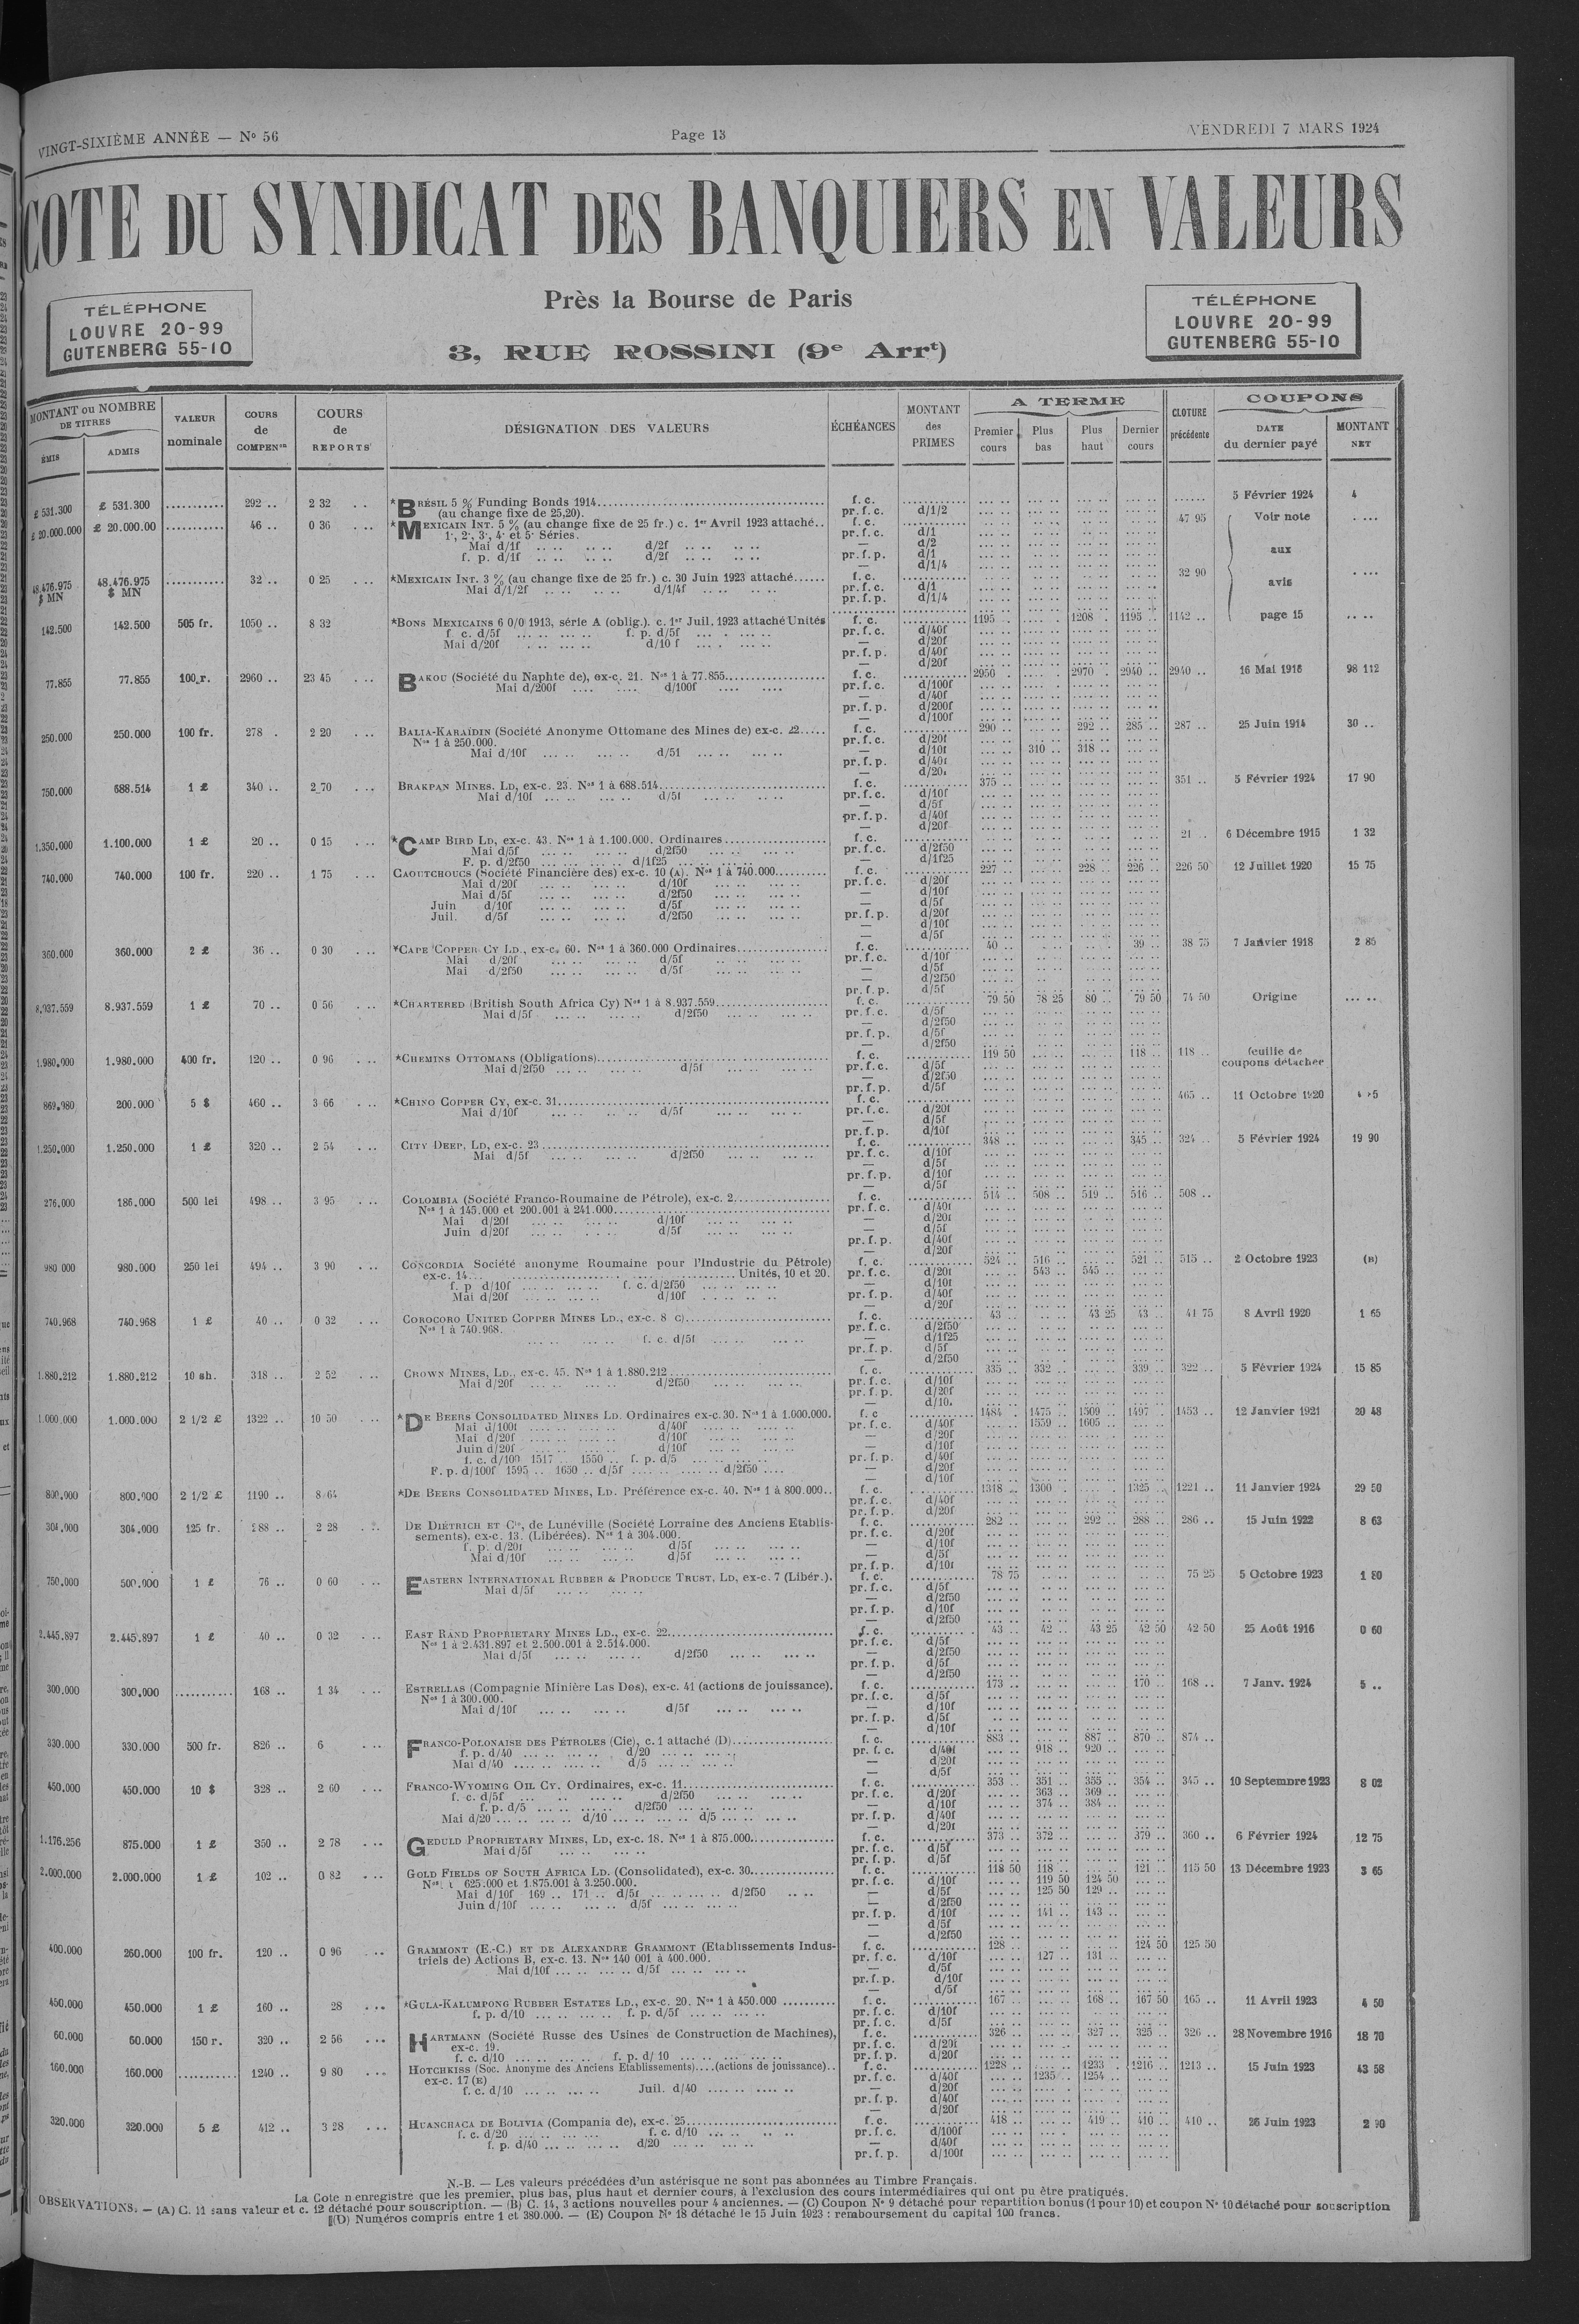 VINGT-SIXIÈME ANNÉE — Nº 56
Page 13
VENDREDI 7 MARS 1924
COTE DU SYNDICAT DES BANQUIERS EN VALEURS
TÉLÉPHONE
LOUVRE 20-99
GUTENBERG 55-10
Près la Bourse de Paris
3, RUE ROSSINI (9e Arrt)
TÉLÉPHONE
LOUVRE 20-99
GUTENBERG 55-10
MONTANT ou NOMBRE DE TITRES
ÉMIS
ADMIS
VALEUR nominale
COURS de COMPENon
COURS de REPORTS
DÉSIGNATION DES VALEURS
ÉCHÉANCES
MONTANT des PRIMES
A TERME
Premier cours
Plus bas
Plus haut
Dernier cours
CLOTURE précédente
COUPONS
DATE du dernier payé
MONTANT NET
£ 531.300 £ 531.300 ........... 292 .. 2 32 *BRÉSIL 5 % Funding Bonds 1914 f. c. 5 Février 1924 4
(au change fixe de 25,20). pr. f. c. d/1/2
£ 20.000.000 £ 20.000.00 ........... 46 .. 0 36 *MEXICAIN INT. 5 % (au change fixe de 25 fr.) c. 1er Avril 1923 attaché.. f. c. 47 95 Voir note
1e, 2e, 3e, 4e et 5e Séries. pr. f. c. d/1
Mai d/1f d/2f — d/2
f. p. d/1f d/2f pr. f. p. d/1 aux
— d/1/4
48.476.975 $ MN 48.476.975 $ MN ........... 32 .. 0 25 *MEXICAIN INT. 3 % (au change fixe de 25 fr.) c. 30 Juin 1923 attaché f. c. 32 90 avis
Mai d/1/2f d/1/4f pr. f. c. d/1
pr. f. p. d/1/4
142.500 142.500 505 fr. 1050 .. 8 32 *BONS MEXICAINS 6 0/0 1913, série A (oblig.). c. 1er Juil. 1923 attaché Unités f. c. 1195 .. 1208 .. 1195 .. 1142 .. page 15
f. c. d/5f f. p. d/5f pr. f. c. d/40f
Mai d/20f d/10 f — d/20f
pr. f. p. d/40f
— d/20f
77.855 77.855 100 r. 2960 .. 23 45 BAKOU (Société du Naphte de), ex-c. 21. Nos 1 à 77.855 f. c. 2950 .. 2970 .. 2940 .. 2940 .. 16 Mai 1916 98 112
Mai d/200f d/100f pr. f. c. d/100f
— d/40f
pr. f. p. d/200f
— d/100f
250.000 250.000 100 fr. 278 . 2 20 BALIA-KARAÏDIN (Société Anonyme Ottomane des Mines de) ex-c. 22 f. c. 290 .. 292 .. 285 .. 287 .. 25 Juin 1914 30 ..
Nos 1 à 250.000. pr. f. c. d/20f
Mai d/10f d/5f — d/10f 310 .. 318 ..
pr. f. p. d/40f
— d/20f
750.000 688.514 1 £ 340 .. 2 70 BRAKPAN MINES. LD, ex-c. 23. Nos 1 à 688.514 f. c. 375 .. 351 .. 5 Février 1924 17 90
Mai d/10f d/5f pr. f. c. d/10f
— d/5f
pr. f. p. d/40f
— d/20f
1.350.000 1.100.000 1 £ 20 .. 0 15 *CAMP BIRD LD, ex-c. 43. Nos 1 à 1.100.000. Ordinaires f. c. 21 .. 6 Décembre 1915 1 32
Mai d/5f d/2f50 pr. f. c. d/2f50
F. p. d/2f50 d/1f25 — d/1f25
740.000 740.000 100 fr. 220 .. 1 75 CAOUTCHOUCS (Société Financière des) ex-c. 10 (A). Nos 1 à 740.000 f. c. 227 .. 228 .. 226 .. 226 50 12 Juillet 1920 15 75
Mai d/20f d/10f pr. f. c. d/20f
Mai d/5f d/2f50 — d/10f
Juin d/10f d/5f — d/5f
Juil. d/5f d/2f50 pr. f. p. d/20f
— d/10f
— d/5f
360.000 360.000 2 £ 36 .. 0 30 *CAPE COPPER CY LD., ex-c. 60. Nos 1 à 360.000 Ordinaires f. c. 40 .. 39 .. 38 75 7 Janvier 1918 2 85
Mai d/20f d/5f pr. f. c. d/10f
Mai d/2f50 d/5f — d/5f
— d/2f50
pr. f. p. d/5f
8.937.559 8.937.559 1 £ 70 .. 0 56 *CHARTERED (British South Africa Cy) Nos 1 à 8.937.559 f. c. 79 50 78 25 80 .. 79 50 74 50 Origine
Mai d/5f d/2f50 pr. f. c. d/5f
— d/2f50
pr. f. p. d/5f
— d/2f50
1.980.000 1.980.000 400 fr. 120 .. 0 96 *CHEMINS OTTOMANS (Obligations) f. c. 119 50 118 .. 118 .. feuille de coupons détachée
Mai d/2f50 d/5f pr. f. c. d/5f
— d/2f50
pr. f. p. d/5f
869.980 200.000 5 $ 460 .. 3 66 *CHINO COPPER CY, ex-c. 31 f. c. 465 .. 11 Octobre 1920
Mai d/10f d/5f pr. f. c. d/20f
— d/5f
pr. f. p. d/10f
1.250.000 1.250.000 1 £ 320 .. 2 54 CITY DEEP, LD, ex-c. 23 f. c. 348 .. 345 .. 324 .. 5 Février 1924 19 90
Mai d/5f d/2f50 pr. f. c. d/10f
— d/5f
pr. f. p. d/10f
— d/5f
276.000 186.000 500 lei 498 .. 3 95 COLOMBIA (Société Franco-Roumaine de Pétrole), ex-c. 2 f. c. 514 .. 508 .. 519 .. 516 .. 508 ..
Nos 1 à 145.000 et 200.001 à 241.000 pr. f. c. d/40f
Mai d/20f d/10f — d/20f
Juin d/20f d/5f — d/5f
pr. f. p. d/40f
— d/20f
980 000 980.000 250 lei 494 .. 3 90 CONCORDIA Société anonyme Roumaine pour l'Industrie du Pétrole) f. c. 524 .. 516 .. 521 .. 515 .. 2 Octobre 1923 (B)
ex-c. 14 Unités, 10 et 20. pr. f. c. d/20f 543 .. 545 ..
f. p d/10f f. c. d/2f50 — d/10f
Mai d/20f d/10f pr. f. p. d/40f
— d/20f
740.968 740.968 1 £ 40 .. 0 32 COROCORO UNITED COPPER MINES LD., ex-c. 8 C) f. c. 43 .. 43 25 43 .. 41 75 8 Avril 1920 1 65
Nos 1 à 740.968. pr. f. c. d/2f50
f. c. d/5f — d/1f25
pr. f. p. d/5f
— d/2f50
1.880.212 1.880.212 10 sh. 318 .. 2 52 CROWN MINES, LD., ex-c. 45. Nos 1 à 1.880.212 f. c. 335 .. 332 .. 339 .. 322 .. 5 Février 1924 15 85
Mai d/20f d/2f50 pr. f. c. d/10f
pr. f. p. d/20f
— d/10.
1.000.000 1.000.000 2 1/2 £ 1322 .. 10 50 *DE BEERS CONSOLIDATED MINES LD. Ordinaires ex-c. 30. Nos 1 à 1.000.000. f. c 1484 . 1475 .. 1509 .. 1497 .. 1453 .. 12 Janvier 1921 20 48
Mai d/100f d/40f pr. f. c. d/40f 1559 .. 1605 ..
Mai d/20f d/10f — d/20f
Juin d/20f d/10f — d/10f
f. c. d/100 1517 .. 1550 .. f. p. d/5 pr. f. p. d/40f
F. p. d/100f 1595 .. 1650 .. d/5f d/2f50 — d/20f
— d/10f
800.000 800.000 2 1/2 £ 1190 .. 8 64 *DE BEERS CONSOLIDATED MINES, LD. Préférence ex-c. 40. Nos 1 à 800.000.. f. c. 1318 .. 1300 .. 1325 .. 1221 .. 11 Janvier 1924 29 50
pr. f. c. d/40f
pr. f. p. d/20f
304.000 304.000 125 fr. 288 .. 2 28 DE DIÉTRICH ET Cie, de Lunéville (Société Lorraine des Anciens Etablis- f. c. 282 .. 292 .. 288 .. 286 .. 15 Juin 1922 8 63
sements), ex-c. 13. (Libérées). Nos 1 à 304.000. pr. f. c. d/20f
f. p. d/20f d/5f — d/10f
Mai d/10f d/5f — d/5f
pr. f. p. d/10f
750.000 500.000 1 £ 76 .. 0 60 EASTERN INTERNATIONAL RUBBER & PRODUCE TRUST, LD, ex-c. 7 (Libér.). f. c. 78 75 75 25 5 Octobre 1923 1 80
Mai d/5f pr. f. c. d/5f
— d/2f50
pr. f. p. d/10f
— d/2f50
2.445.897 2.445.897 1 £ 40 .. 0 32 EAST RAND PROPRIETARY MINES LD., ex-c. 22 f. c. 43 .. 42 .. 43 25 42 50 42 50 25 Août 1916 0 60
Nos 1 à 2.431.897 et 2.500.001 à 2.514.000. pr. f. c. d/5f
Mai d/5f d/2f50 — d/2f50
pr. f. p. d/5f
— d/2f50
300.000 300.000 ........... 168 .. 1 34 ESTRELLAS (Compagnie Minière Las Dos), ex-c. 41 (actions de jouissance). f. c. 173 .. 170 .. 168 .. 7 Janv. 1924 5 ..
Nos 1 à 300.000. pr. f. c. d/5f
Mai d/10f d/5f — d/10f
pr. f. p. d/5f
— d/10f
330.000 330.000 500 fr. 826 .. 6 FRANCO-POLONAISE DES PÉTROLES (Cie), c. 1 attaché (D) f. c. 883 .. 887 .. 870 .. 874 ..
f. p. d/40 d/20 pr. f. c. d/40f 918 .. 920 ..
Mai d/40 d/5 — d/20f
— d/5f
450.000 450.000 10 $ 328 .. 2 60 FRANCO-WYOMING OIL CY. Ordinaires, ex-c. 11 f. c. 353 .. 351 .. 355 .. 354 .. 345 .. 10 Septembre 1923 8 02
f. c. d/5f d/2f50 pr. f. c. d/20f 363 .. 369 ..
f. p. d/5 d/2f50 — d/10f 374 .. 384 ..
Mai d/20 d/10 d/5 pr. f. p. d/40f
— d/20f
1.176.256 875.000 1 £ 350 .. 2 78 GEDULD PROPRIETARY MINES, LD, ex-c. 18. Nos 1 à 875.000 f. c. 373 .. 372 .. 379 .. 360 .. 6 Février 1924 12 75
Mai d/5f pr. f. c. d/5f
pr. f. p. d/5f
2.000.000 2.000.000 1 £ 102 .. 0 82 GOLD FIELDS OF SOUTH AFRICA LD. (Consolidated), ex-c. 30 f. c. 118 50 118 .. 121 .. 115 50 13 Décembre 1923 3 65
Nos 1 625.000 et 1.875.001 à 3.250.000. pr. f. c. d/10f 119 50 124 50
Mai d/10f 169 .. 171 .. d/5f d/2f50 — d/5f 125 50 129 ..
Juin d/10f d/5f — d/2f50
pr. f. p. d/10f 141 .. 143 ..
— d/5f
— d/2f50
400.000 260.000 100 fr. 120 .. 0 96 GRAMMONT (E.-C.) ET DE ALEXANDRE GRAMMONT (Etablissements Indus- f. c. 128 .. 124 50 125 50
triels de) Actions B, ex-c. 13. Nos 140 001 à 400.000. pr. f. c. d/10f 127 .. 131 ..
Mai d/10f d/5f — d/5f
pr. f. p. d/10f
— d/5f
450.000 450.000 1 £ 160 .. 28 *GULA-KALUMPONG RUBBER ESTATES LD., ex-c. 20. Nos 1 à 450.000 f. c. 167 .. 168 .. 167 50 165 .. 11 Avril 1923 4 50
f. p. d/10 f. p. d/5f pr. f. c. d/10f
pr. f. c. d/5f
60.000 60.000 150 r. 320 .. 2 56 HARTMANN (Société Russe des Usines de Construction de Machines), f. c. 326 .. 327 .. 325 .. 326 .. 28 Novembre 1916 18 70
ex-c. 19. pr. f. c. d/20f
f. c. d/10 f. p. d/ 10 pr. f. p. d/20f
160.000 160.000 ........... 1240 .. 9 80 HOTCHKISS (Soc. Anonyme des Anciens Etablissements)....(actions de jouissance).. f. c. 1228 .. 1233 . 1216 .. 1213 .. 15 Juin 1923 43 58
ex-c. 17 (E) pr. f. c. d/40f 1235 .. 1254 ..
f. c. d/10 Juil. d/40 — d/20f
pr. f. p. d/40f
— d/20f
320.000 320.000 5 £ 412 .. 3 28 HUANCHACA DE BOLIVIA (Compania de), ex-c. 25 f. c. 418 .. 419 .. 410 .. 410 .. 26 Juin 1923 2 90
f. c. d/20 f. c. d/10 pr. f. c. d/100f
f. p. d/40 d/20 — d/40f
pr. f. p. d/100f
N.-B. — Les valeurs précédées d'un astérisque ne sont pas abonnées au Timbre Français.
La Cote n enregistre que les premier, plus bas, plus haut et dernier cours, à l'exclusion des cours intermédiaires qui ont pu être pratiqués.
OBSERVATIONS. — (A) C. 11 sans valeur et c. 12 détaché pour souscription. — (B) C. 14, 3 actions nouvelles pour 4 anciennes. — (C) Coupon Nº 9 détaché pour repartition bonus (1 pour 10) et coupon Nº 10 détaché pour souscription
(D) Numéros compris entre 1 et 380.000. — (E) Coupon Nº 18 détaché le 15 Juin 1923 : remboursement du capital 100 francs.